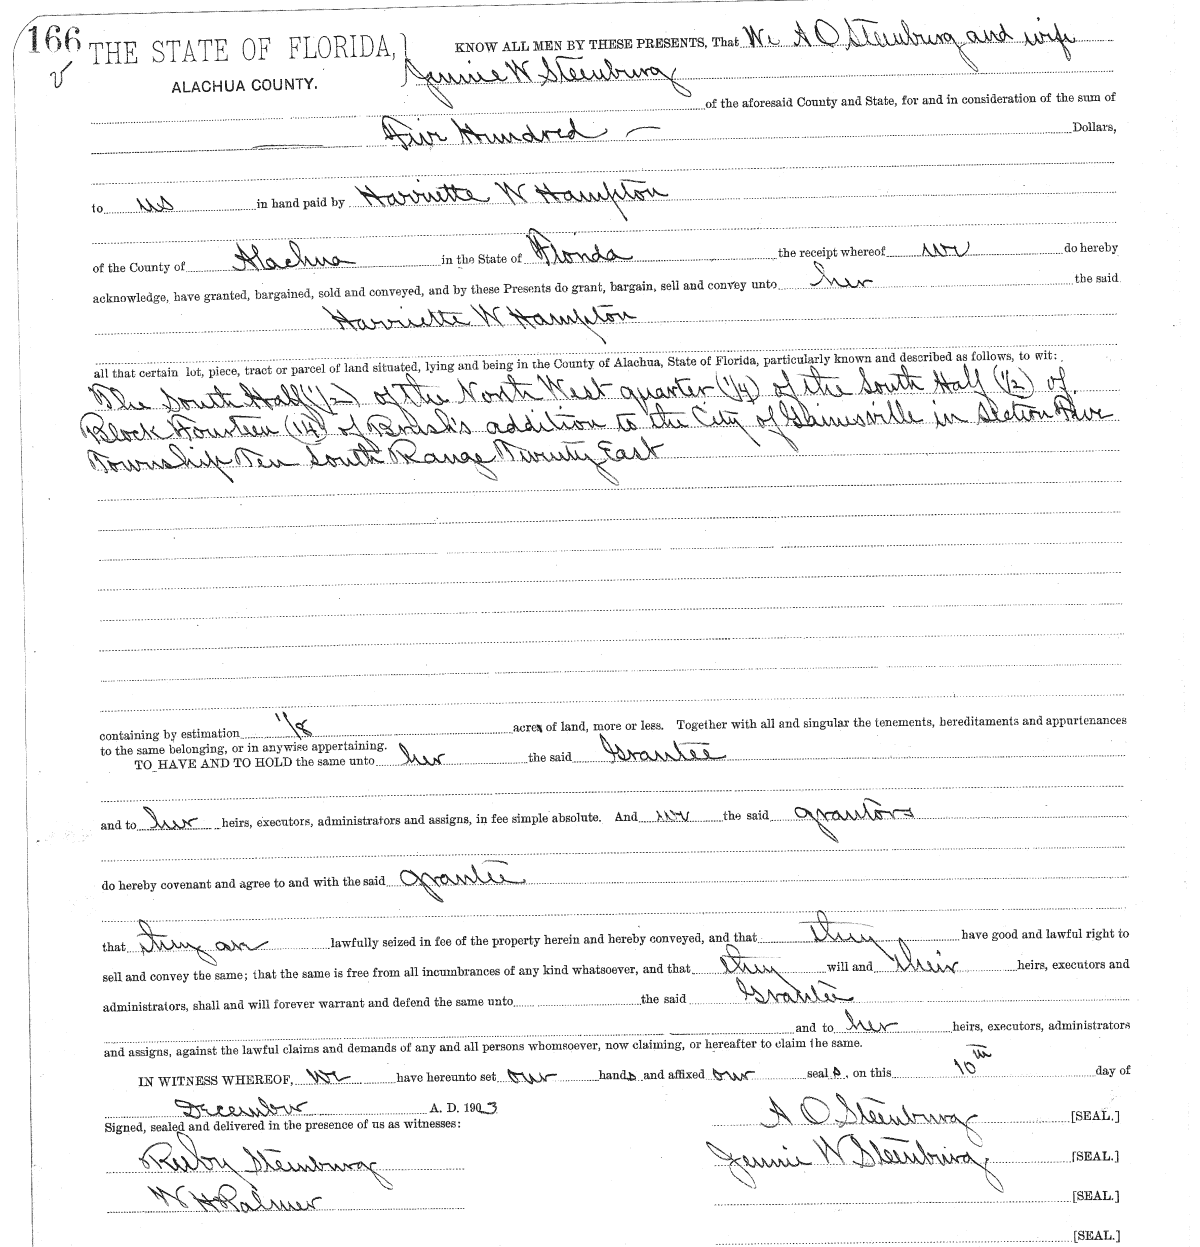 166
THE STATE OF FLORIDA,
ALACHUA COUNTY.
KNOW ALL MEN BY THESE PRESENTS, That We A O Steenburg and wife
Jennie W Steenburg
of the aforesaid County and State, for and in consideration of the sum of
Five Hundred Dollars,
to us in hand paid by Harriette W Hampton
of the County of Alachua in the State of Florida the receipt whereof we do hereby
acknowledge, have granted, bargained, sold and conveyed, and by these Presents do grant, bargain, sell and convey unto her the said
Harriette W Hampton
all that certain lot, piece, tract or parcel of land situated, lying and being in the County of Alachua, State of Florida, particularly known and described as follows, to wit:
The South Half (1/2) of the North West quarter (1/4) of the South Half (1/2) of
Block Fourteen (14) of Brush's addition to the City of Gainesville in Section Five
Township Ten South Range Twenty East
containing by estimation acres of land, more or less. Together with all and singular the tenements, hereditaments and appurtenances
to the same belonging, or in anywise appertaining.
TO HAVE AND TO HOLD the same unto her the said Grantee
and to her heirs, executors, administrators and assigns, in fee simple absolute. And we the said grantors
do hereby covenant and agree to and with the said grantee
that they are lawfully seized in fee of the property herein and hereby conveyed, and that they have good and lawful right to
sell and convey the same; that the same is free from all incumbrances of any kind whatsoever, and that they will and their heirs, executors and
administrators, shall and will forever warrant and defend the same unto the said Grantee
and to her heirs, executors, administrators
and assigns, against the lawful claims and demands of any and all persons whomsoever, now claiming, or hereafter to claim the same.
IN WITNESS WHEREOF, we have hereunto set our hands and affixed our seals, on this 10th day of
December A. D. 1903
Signed, sealed and delivered in the presence of us as witnesses:
A O Steenburg [SEAL.]
Ruby Steenburg
Jennie W Steenburg [SEAL.]
W H Palmer
[SEAL.]
[SEAL.]